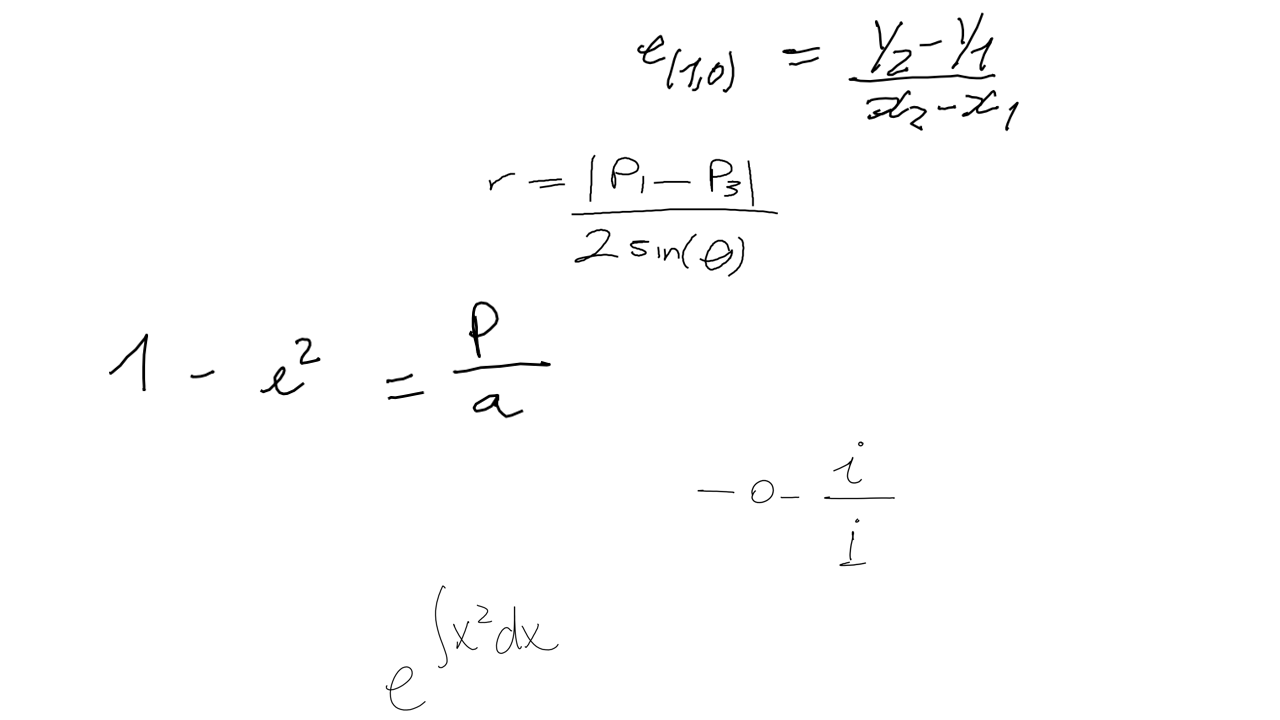 e_{(1,0)} = \frac{y_2 - y_1}{x_2 - x_1}
r = \frac{|P_1 - P_3|}{2 \sin(\theta)}
1 - e^2 = \frac{P}{a}
-0 - \frac{i}{i}
e^{\int x^2 dx}